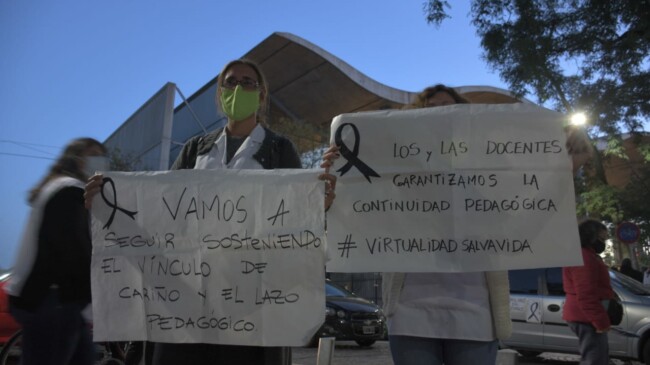 VAMOS A
SEGUIR SOSTENIENDO
EL VÍNCULO DE
CARIÑO Y EL LAZO
PEDAGÓGICO.
LOS y LAS DOCENTES
GARANTIZAMOS LA
CONTINUIDAD PEDAGÓGICA
# VIRTUALIDAD SALVAVIDA